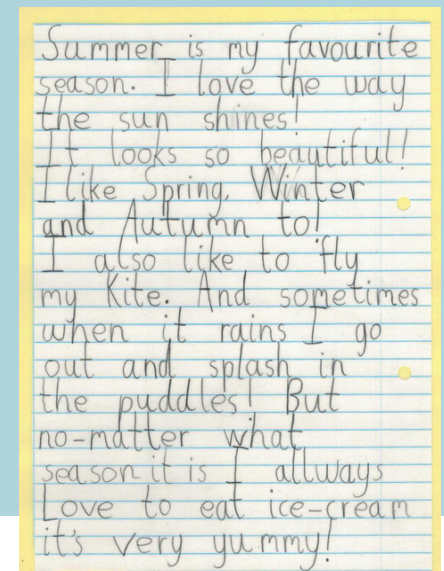 Summer is my favourite
season. I love the way
the sun shines!
It looks so beautiful!
I like Spring, Winter
and Autumn to!
I also like to fly
my Kite. And sometimes
when it rains I go
out and splash in
the puddles! But
no-matter what
season it is I allways
Love to eat ice-cream
it's very yummy!